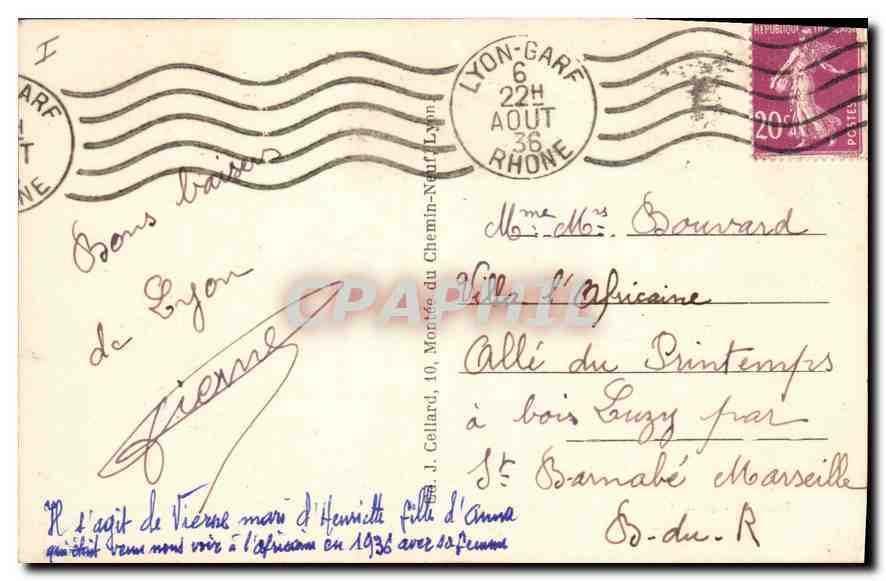 I
LYON-GARE
6
22H
AOUT
36
RHONE
REPUBLIQUE FRANCAISE
20c
POSTES
ARF
NE
Bons baisers
de Lyon
Vierne
Ed. J. Cellard, 10, Montée du Chemin-Neuf, Lyon
CPAPHIL
Mme Mrs Bouvard
Villa l'Africaine
Allé du Printemps
à bois Luzy par
St Barnabé Marseille
B-du-R
Il s'agit de Vierne mari d'Henriette fille d'Anna
qui était venu nous voir à l'africaine en 1936 avec sa femme